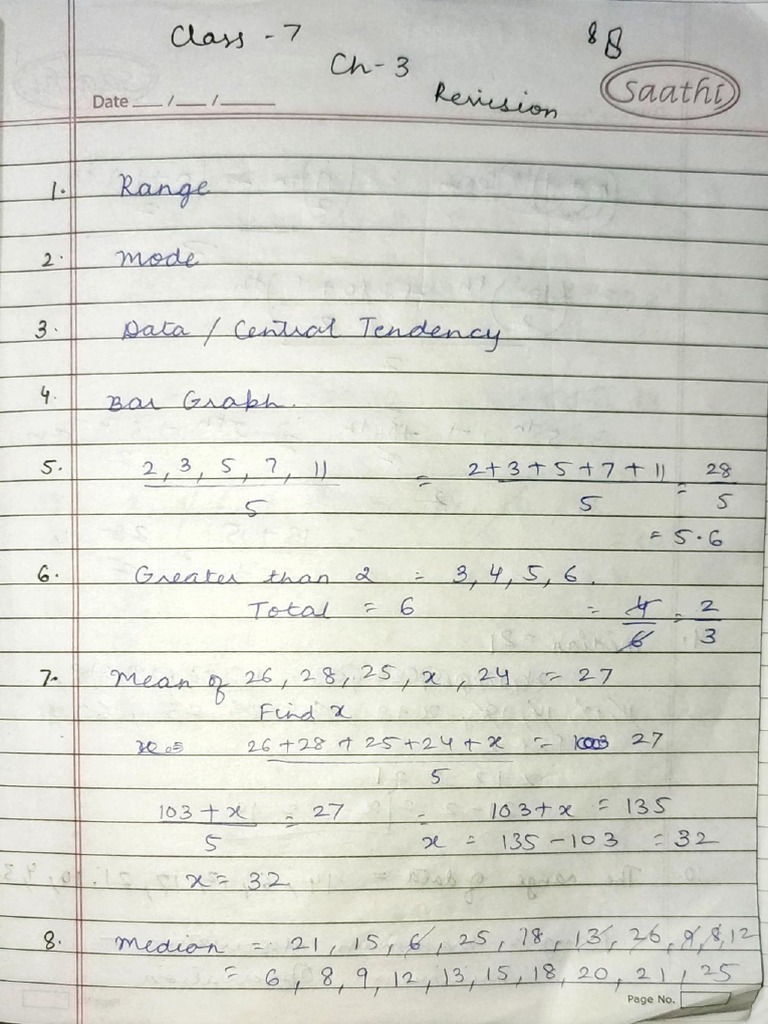 Class - 7
8 8
Ch- 3
Revision
Saathi
Date __/__/____
1. Range
2. Mode
3. Data / Central Tendency
4. Bar Graph.
5. 2, 3, 5, 7, 11 / 5 = 2+3+5+7+11 / 5 = 28 / 5
= 5.6
6. Greater than 2 = 3, 4, 5, 6.
Total = 6 = 4/6 = 2/3
7. Mean of 26, 28, 25, x, 24 = 27
Find x
26+28+25+24+x / 5 = 27
103+x / 5 = 27 = 103+x = 135
x = 135-103 = 32
x = 32
8. Median = 21, 15, 6, 25, 18, 13, 26, 9, 8, 12
= 6, 8, 9, 12, 13, 15, 18, 20, 21, 25
Page No.